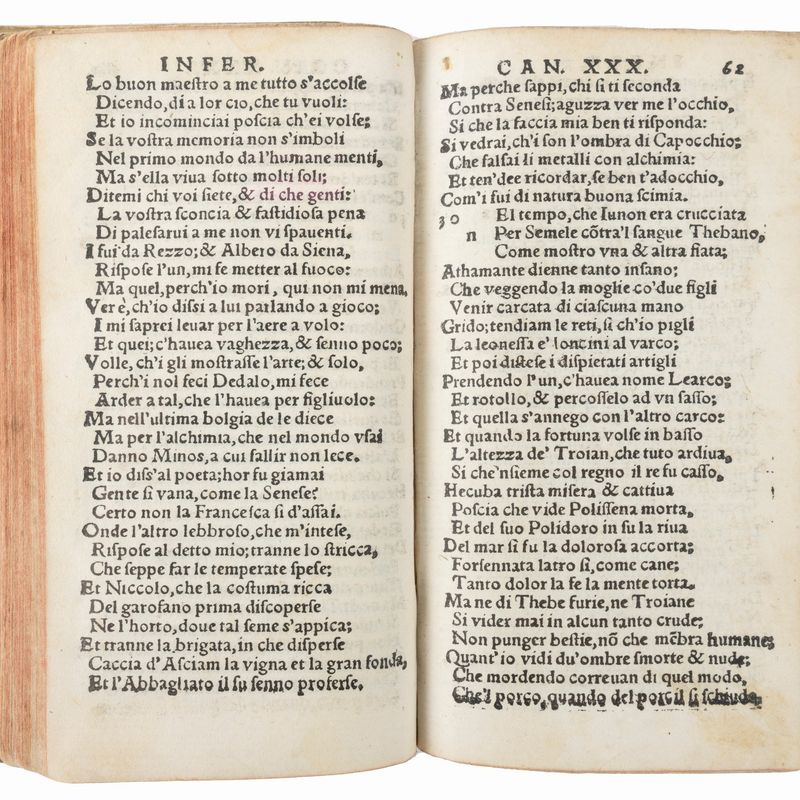 INFER.
Lo buon maestro a me tutto s'accolſe
Dicendo, di a lor cio, che tu vuoli:
Et io incominciai poſcia ch'ei volſe;
Se la voſtra memoria non s'imboli
Nel primo mondo da l'humane menti,
Ma s'ella viua ſotto molti ſoli;
Ditemi chi voi ſiete, & di che genti:
La voſtra ſconcia & faſtidioſa pena
Di paleſarui a me non vi ſpauenti.
I fui da Rezzo; & Albero da Siena,
Riſpoſe l'un, mi fe metter al fuoco:
Ma quel, perch'io mori, qui non mi mena.
Ver è, ch'io diſſi a lui parlando a gioco;
I mi ſaprei leuar per l'aere a volo:
Et quei; c'hauea vaghezza, & ſenno poco;
Volle, ch'i gli moſtraſſe l'arte; & ſolo,
Perch'i nol feci Dedalo, mi fece
Arder a tal, che l'hauea per figliuolo:
Ma nell'ultima bolgia de le diece
Ma per l'alchimia, che nel mondo vſai
Danno Minos, a cui fallir non lece.
Et io diſſ'al poeta; hor fu giamai
Gente ſi vana, come la Seneſe?
Certo non la Franceſca ſi d'aſſai.
Onde l'altro lebbroſo, che m'inteſe,
Riſpoſe al detto mio; tranne lo ſtricca,
Che ſeppe far le temperate ſpeſe;
Et Niccolo, che la coſtuma ricca
Del garofano prima diſcoperſe
Ne l'horto, doue tal ſeme s'appica;
Et tranne la brigata, in che diſperſe
Caccia d'Aſciam la vigna et la gran fonda,
Et l'Abbagliato il ſu ſenno proferſe.
CAN. XXX. 62
Ma perche ſappi, chi ſi ti ſeconda
Contra Seneſi; aguzza ver me l'occhio,
Si che la faccia mia ben ti riſponda:
Si vedrai, ch'i ſon l'ombra di Capocchio;
Che falſai li metalli con alchimia:
Et ten'dee ricordar, ſe ben t'adocchio,
Com'i fui di natura buona ſcimia.
30 El tempo, che Iunon era crucciata
n Per Semele cõtra'l ſangue Thebano,
Come moſtro vna & altra fiata;
Athamante dienne tanto inſano;
Che veggendo la moglie co'due figli
Venir carcata di ciaſcuna mano
Grido; tendiam le reti, ſi ch'io pigli
La leoneſſa e' loncini al varco;
Et poi diſteſe i diſpietati artigli
Prendendo l'un, c'hauea nome Learco;
Et rotollo, & percoſſelo ad vn ſaſſo;
Et quella s'annego con l'altro carco:
Et quando la fortuna volſe in baſſo
L'altezza de' Troian, che tuto ardiua,
Si che'nſieme col regno il re fu caſſo,
Hecuba triſta miſera & cattiua
Poſcia che vide Poliſſena morta,
Et del ſuo Polidoro in ſu la riua
Del mar ſi fu la doloroſa accorta;
Forſennata latro ſi, come cane;
Tanto dolor la fe la mente torta.
Ma ne di Thebe furie, ne Troiane
Si vider mai in alcun tanto crude;
Non punger beſtie, nõ che mẽbra humane;
Quant'io vidi du'ombre ſmorte & nude;
Che mordendo correuan di quel modo,
Che'l porco, quando del porcil ſi ſchiude.